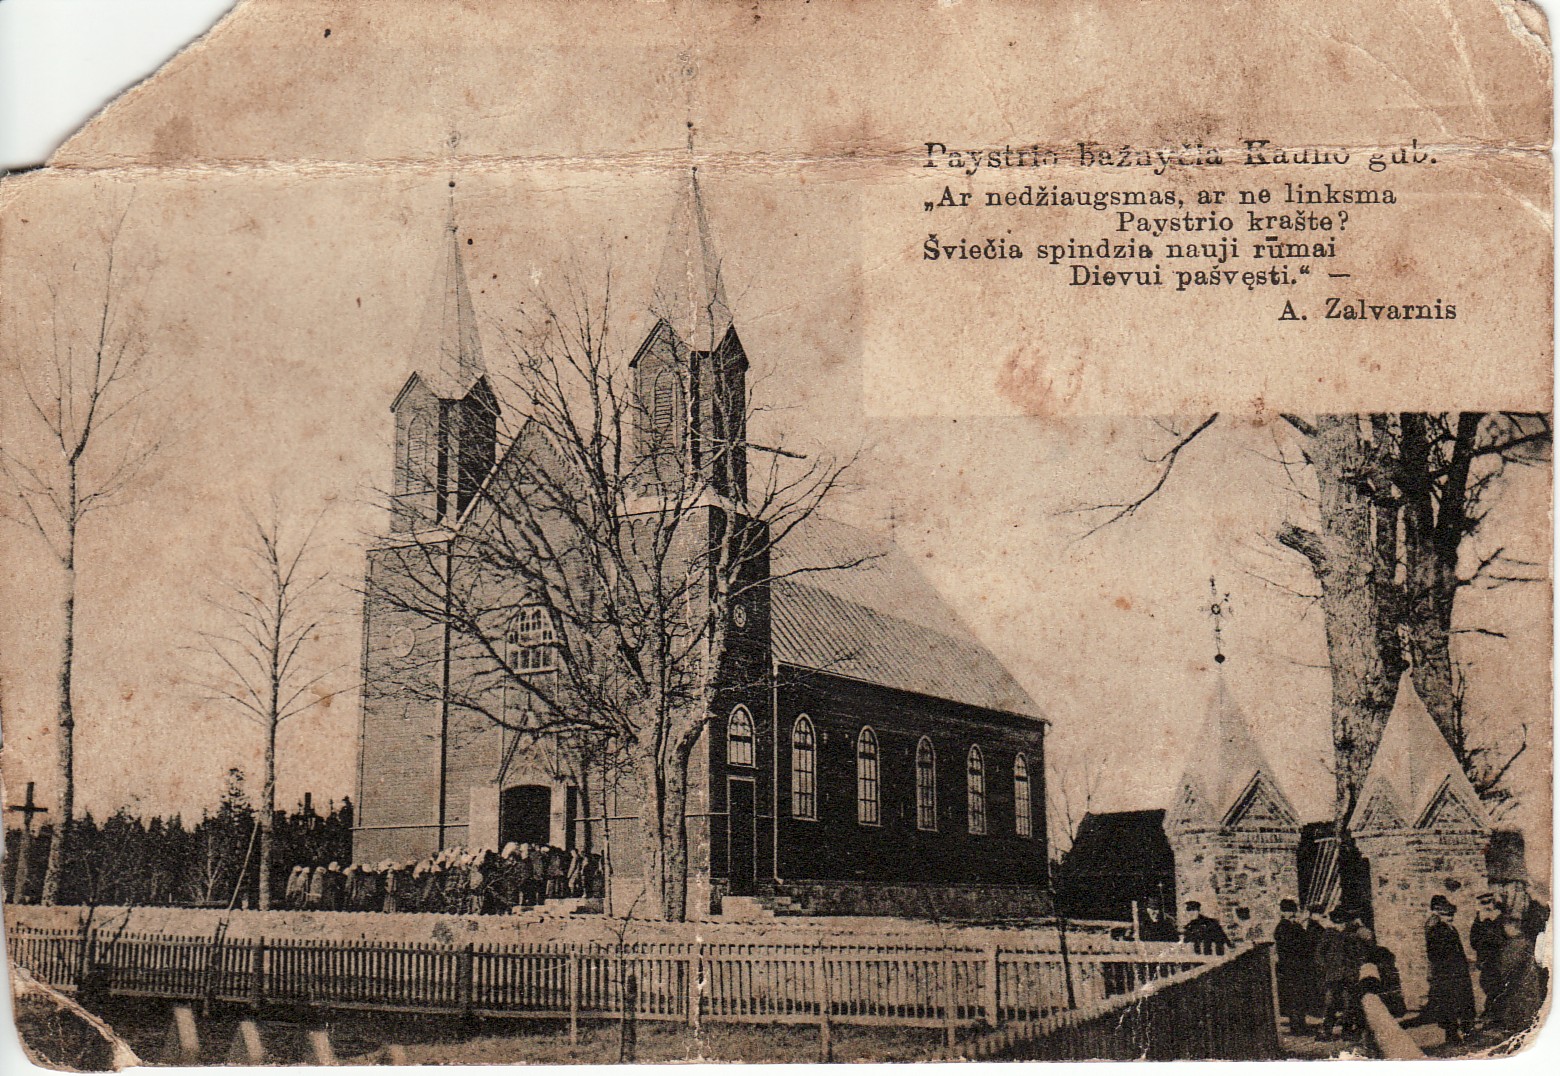 Paystrio bažnyčia Kauno gub.
„Ar nedžiaugsmas, ar ne linksma
Paystrio krašte?
Šviečia spindzia nauji rūmai
Dievui pašvęsti.“ —
A. Zalvarnis